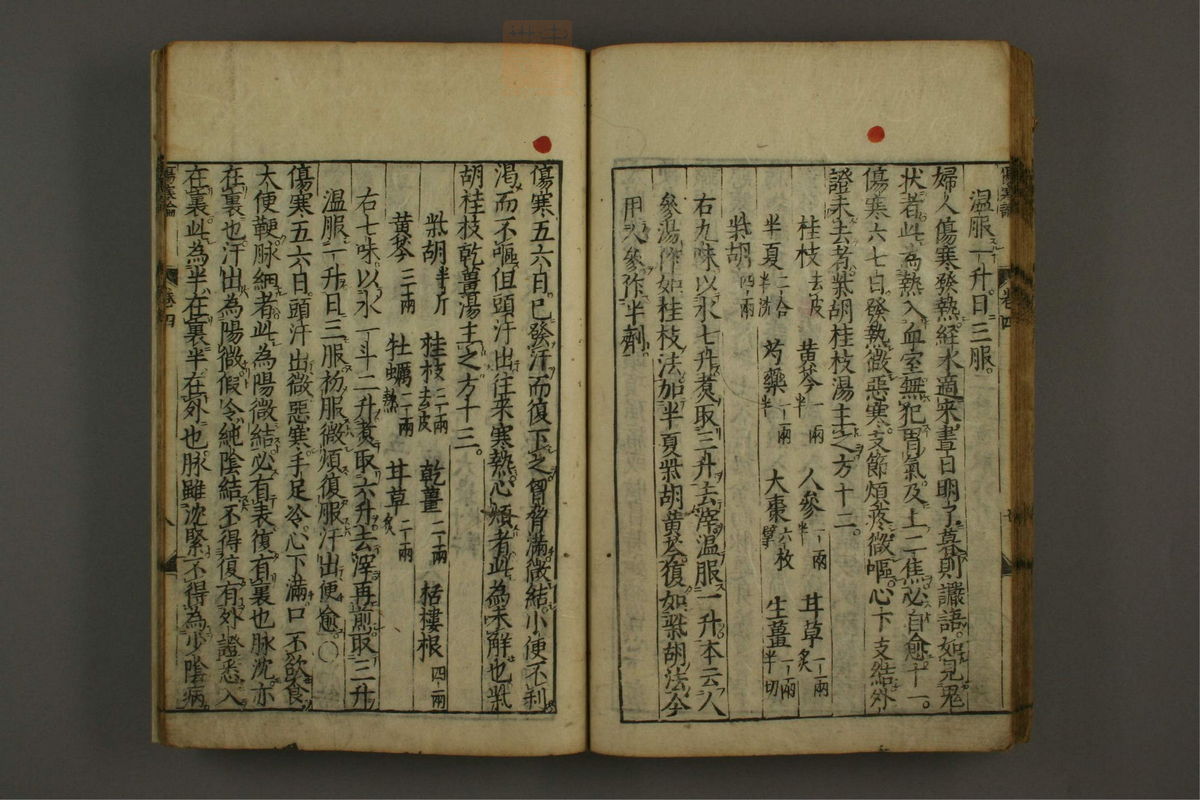 溫服一升日三服
婦人傷寒發熱經水適來晝日明了暮則讝語如見鬼
狀者此為熱入血室無犯胃氣及上二焦必自愈十一
傷寒六七日發熱微惡寒支節煩疼微嘔心下支結外
證未去者柴胡桂枝湯主之方十二
桂枝去皮 黃芩一兩半 人參一兩半 甘草一兩炙
半夏二合半洗 芍藥一兩半 大棗六枚擘 生薑一兩半切
柴胡四兩
右九味以水七升煑取三升去滓溫服一升本云人
參湯作如桂枝法加半夏柴胡黃芩復如柴胡法今
用人參作半劑
傷寒論 卷四
傷寒五六日已發汗而復下之胷脅滿微結小便不利
渴而不嘔但頭汗出往來寒熱心煩者此為未解也柴
胡桂枝乾薑湯主之方十三
柴胡半斤 桂枝三兩去皮 乾薑二兩 栝樓根四兩
黃芩三兩 牡蠣二兩熬 甘草二兩炙
右七味以水一斗二升煑取六升去滓再煎取三升
溫服一升日三服初服微煩復服汗出便愈○
傷寒五六日頭汗出微惡寒手足冷心下滿口不欲食
大便鞕脉細者此為陽微結必有表復有裏也脉沈亦
在裏也汗出為陽微假令純陰結不得復有外證悉入
在裏此為半在裏半在外也脉雖沈緊不得為少陰病
傷寒論 卷四 八